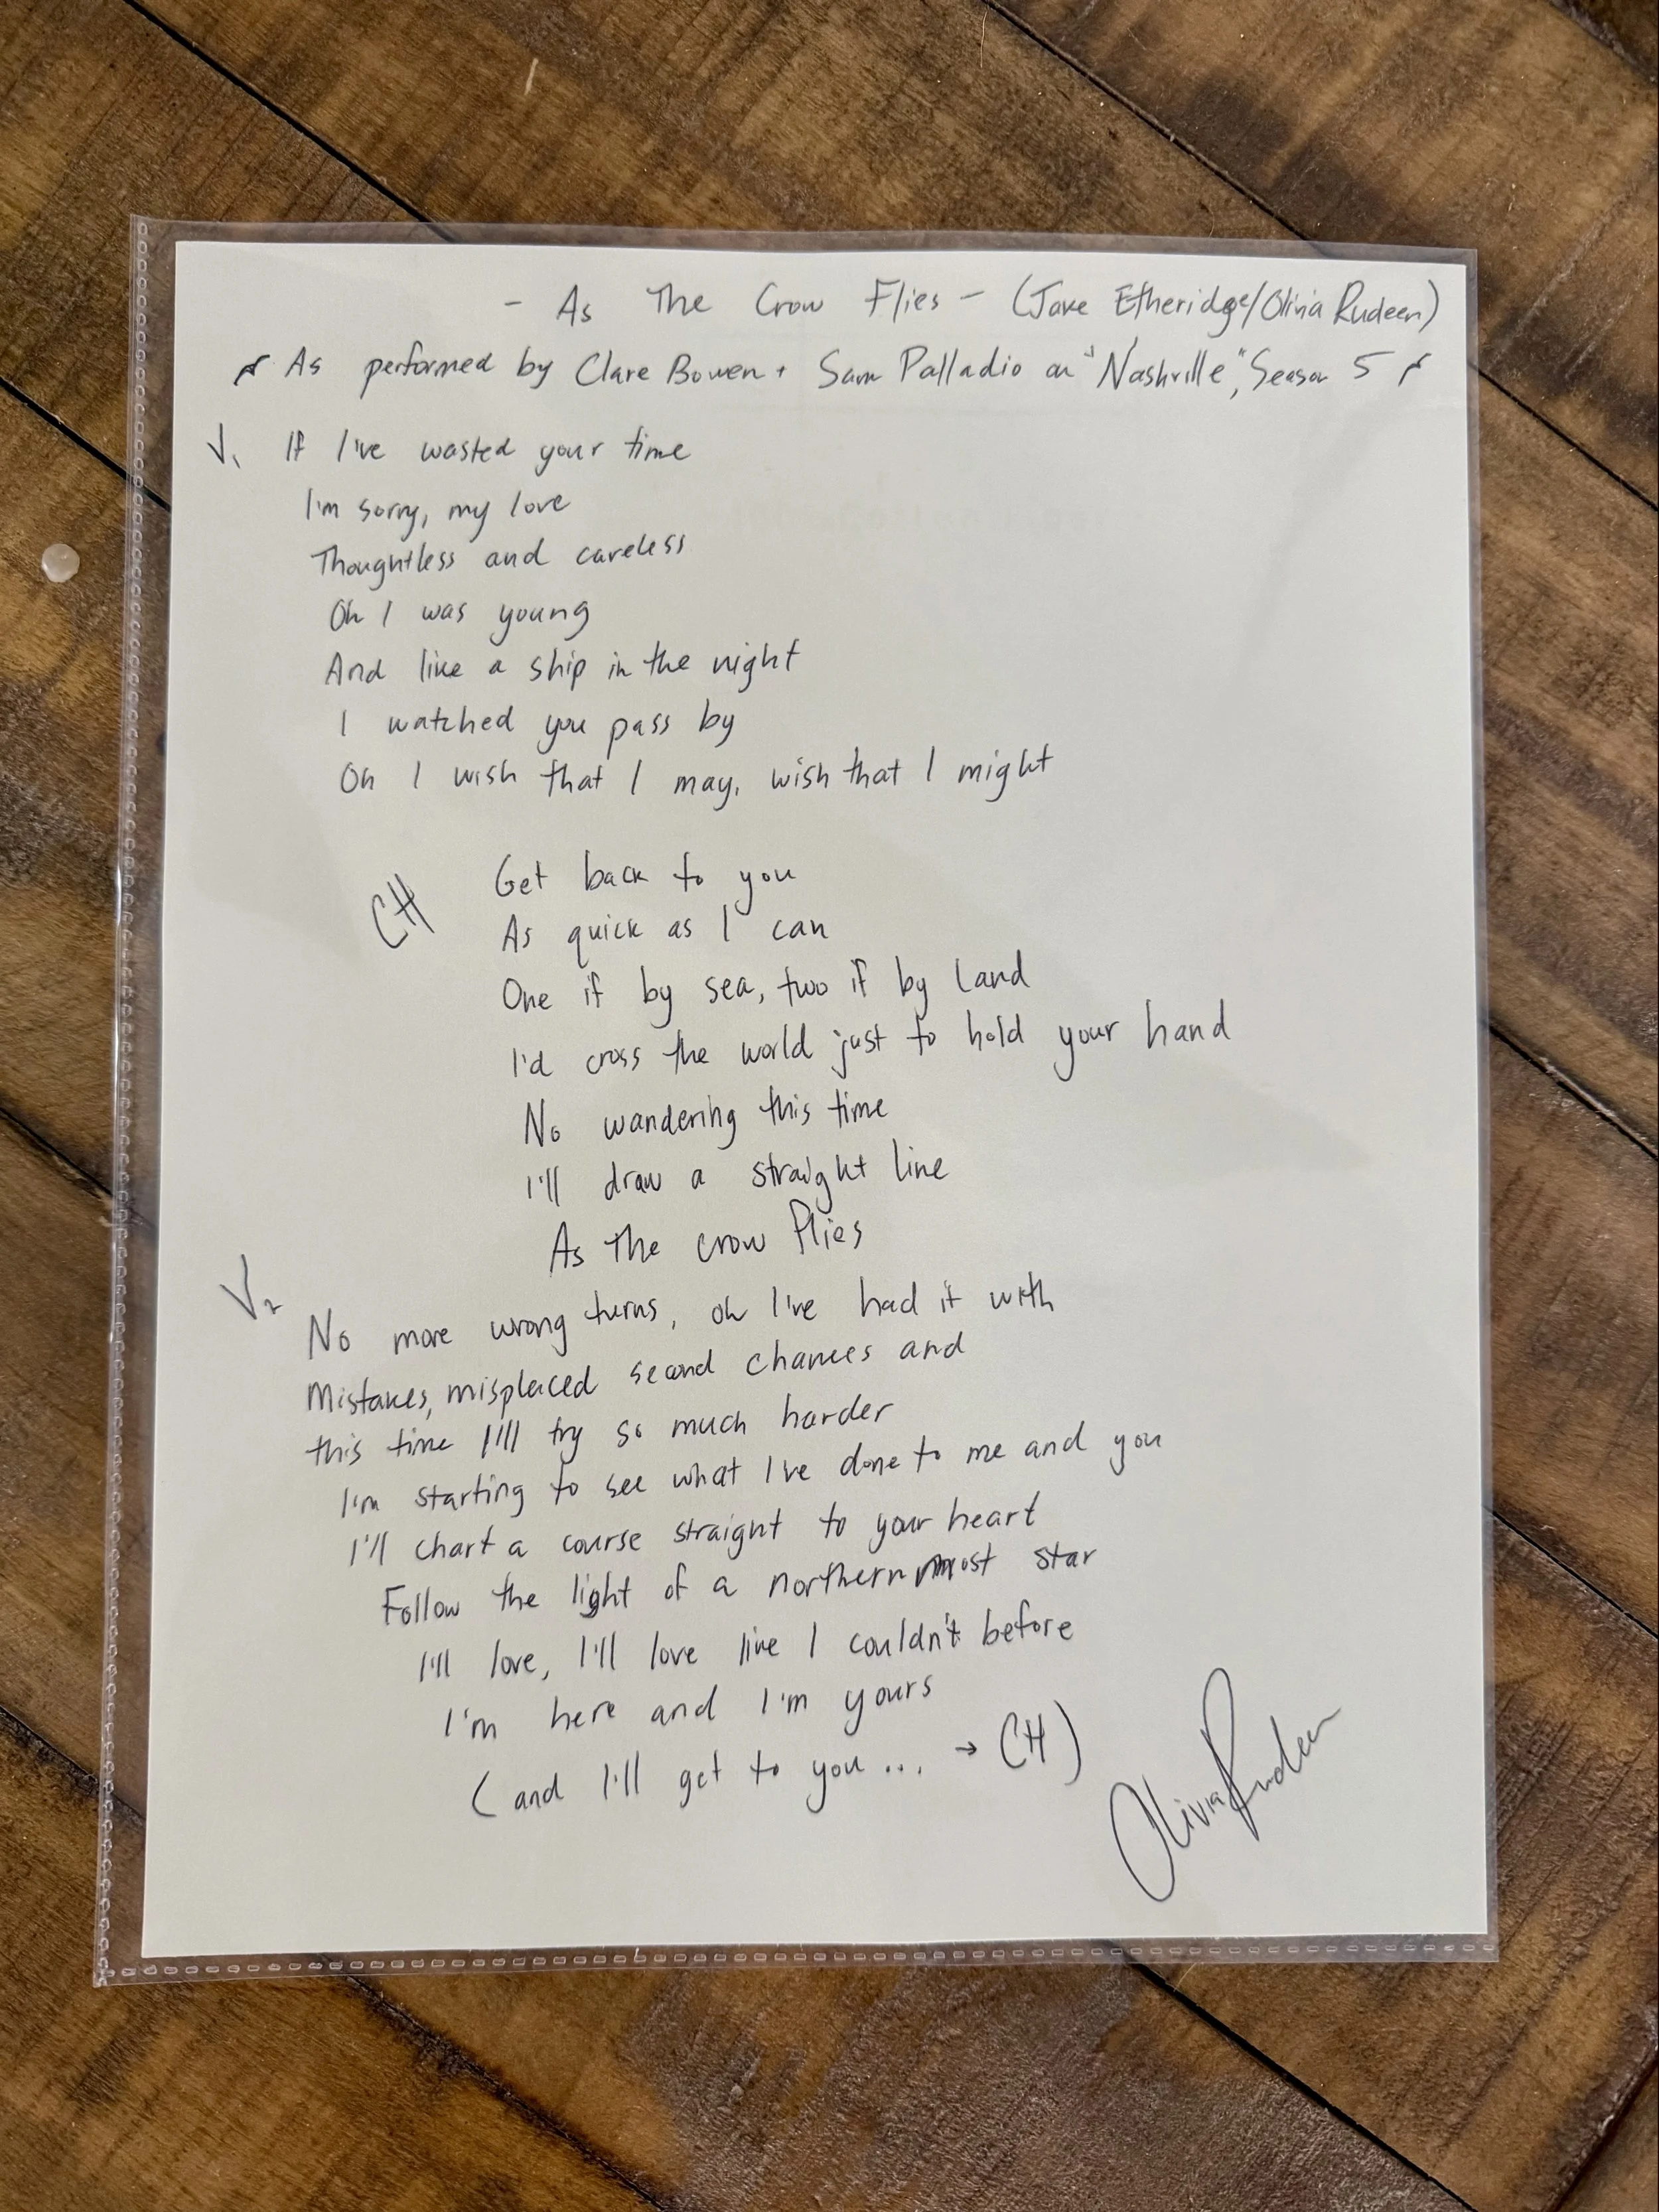 - As The Crow Flies - (Jake Etheridge/Olivia Rudeen)
As performed by Clare Bowen + Sam Palladio on "Nashville", Season 5
V1 If I've wasted your time
I'm sorry, my love
Thoughtless and careless
Oh I was young
And like a ship in the night
I watched you pass by
Oh I wish that I may, wish that I might
CH Get back to you
As quick as I can
One if by sea, two if by land
I'd cross the world just to hold your hand
No wandering this time
I'll draw a straight line
As the crow flies
V2 No more wrong turns, oh I've had it with
Mistakes, misplaced second chances and
this time I'll try so much harder
I'm starting to see what I've done to me and you
I'll chart a course straight to your heart
Follow the light of a northernmost star
I'll love, I'll love like I couldn't before
I'm here and I'm yours
(and I'll get to you... → CH)
Olivia Rudeen